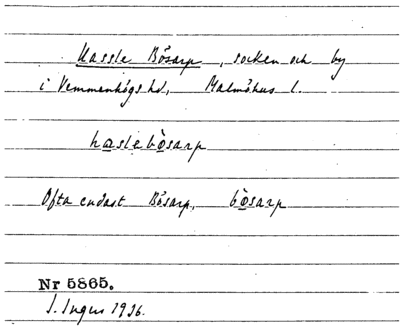 Hassle Bösarp, socken och by
i Vemmenhögs hd, Malmöhus l.
haslebösarp
Ofta endast Bösarp, bösarp
Nr 5865.
I. Ingers 1936.